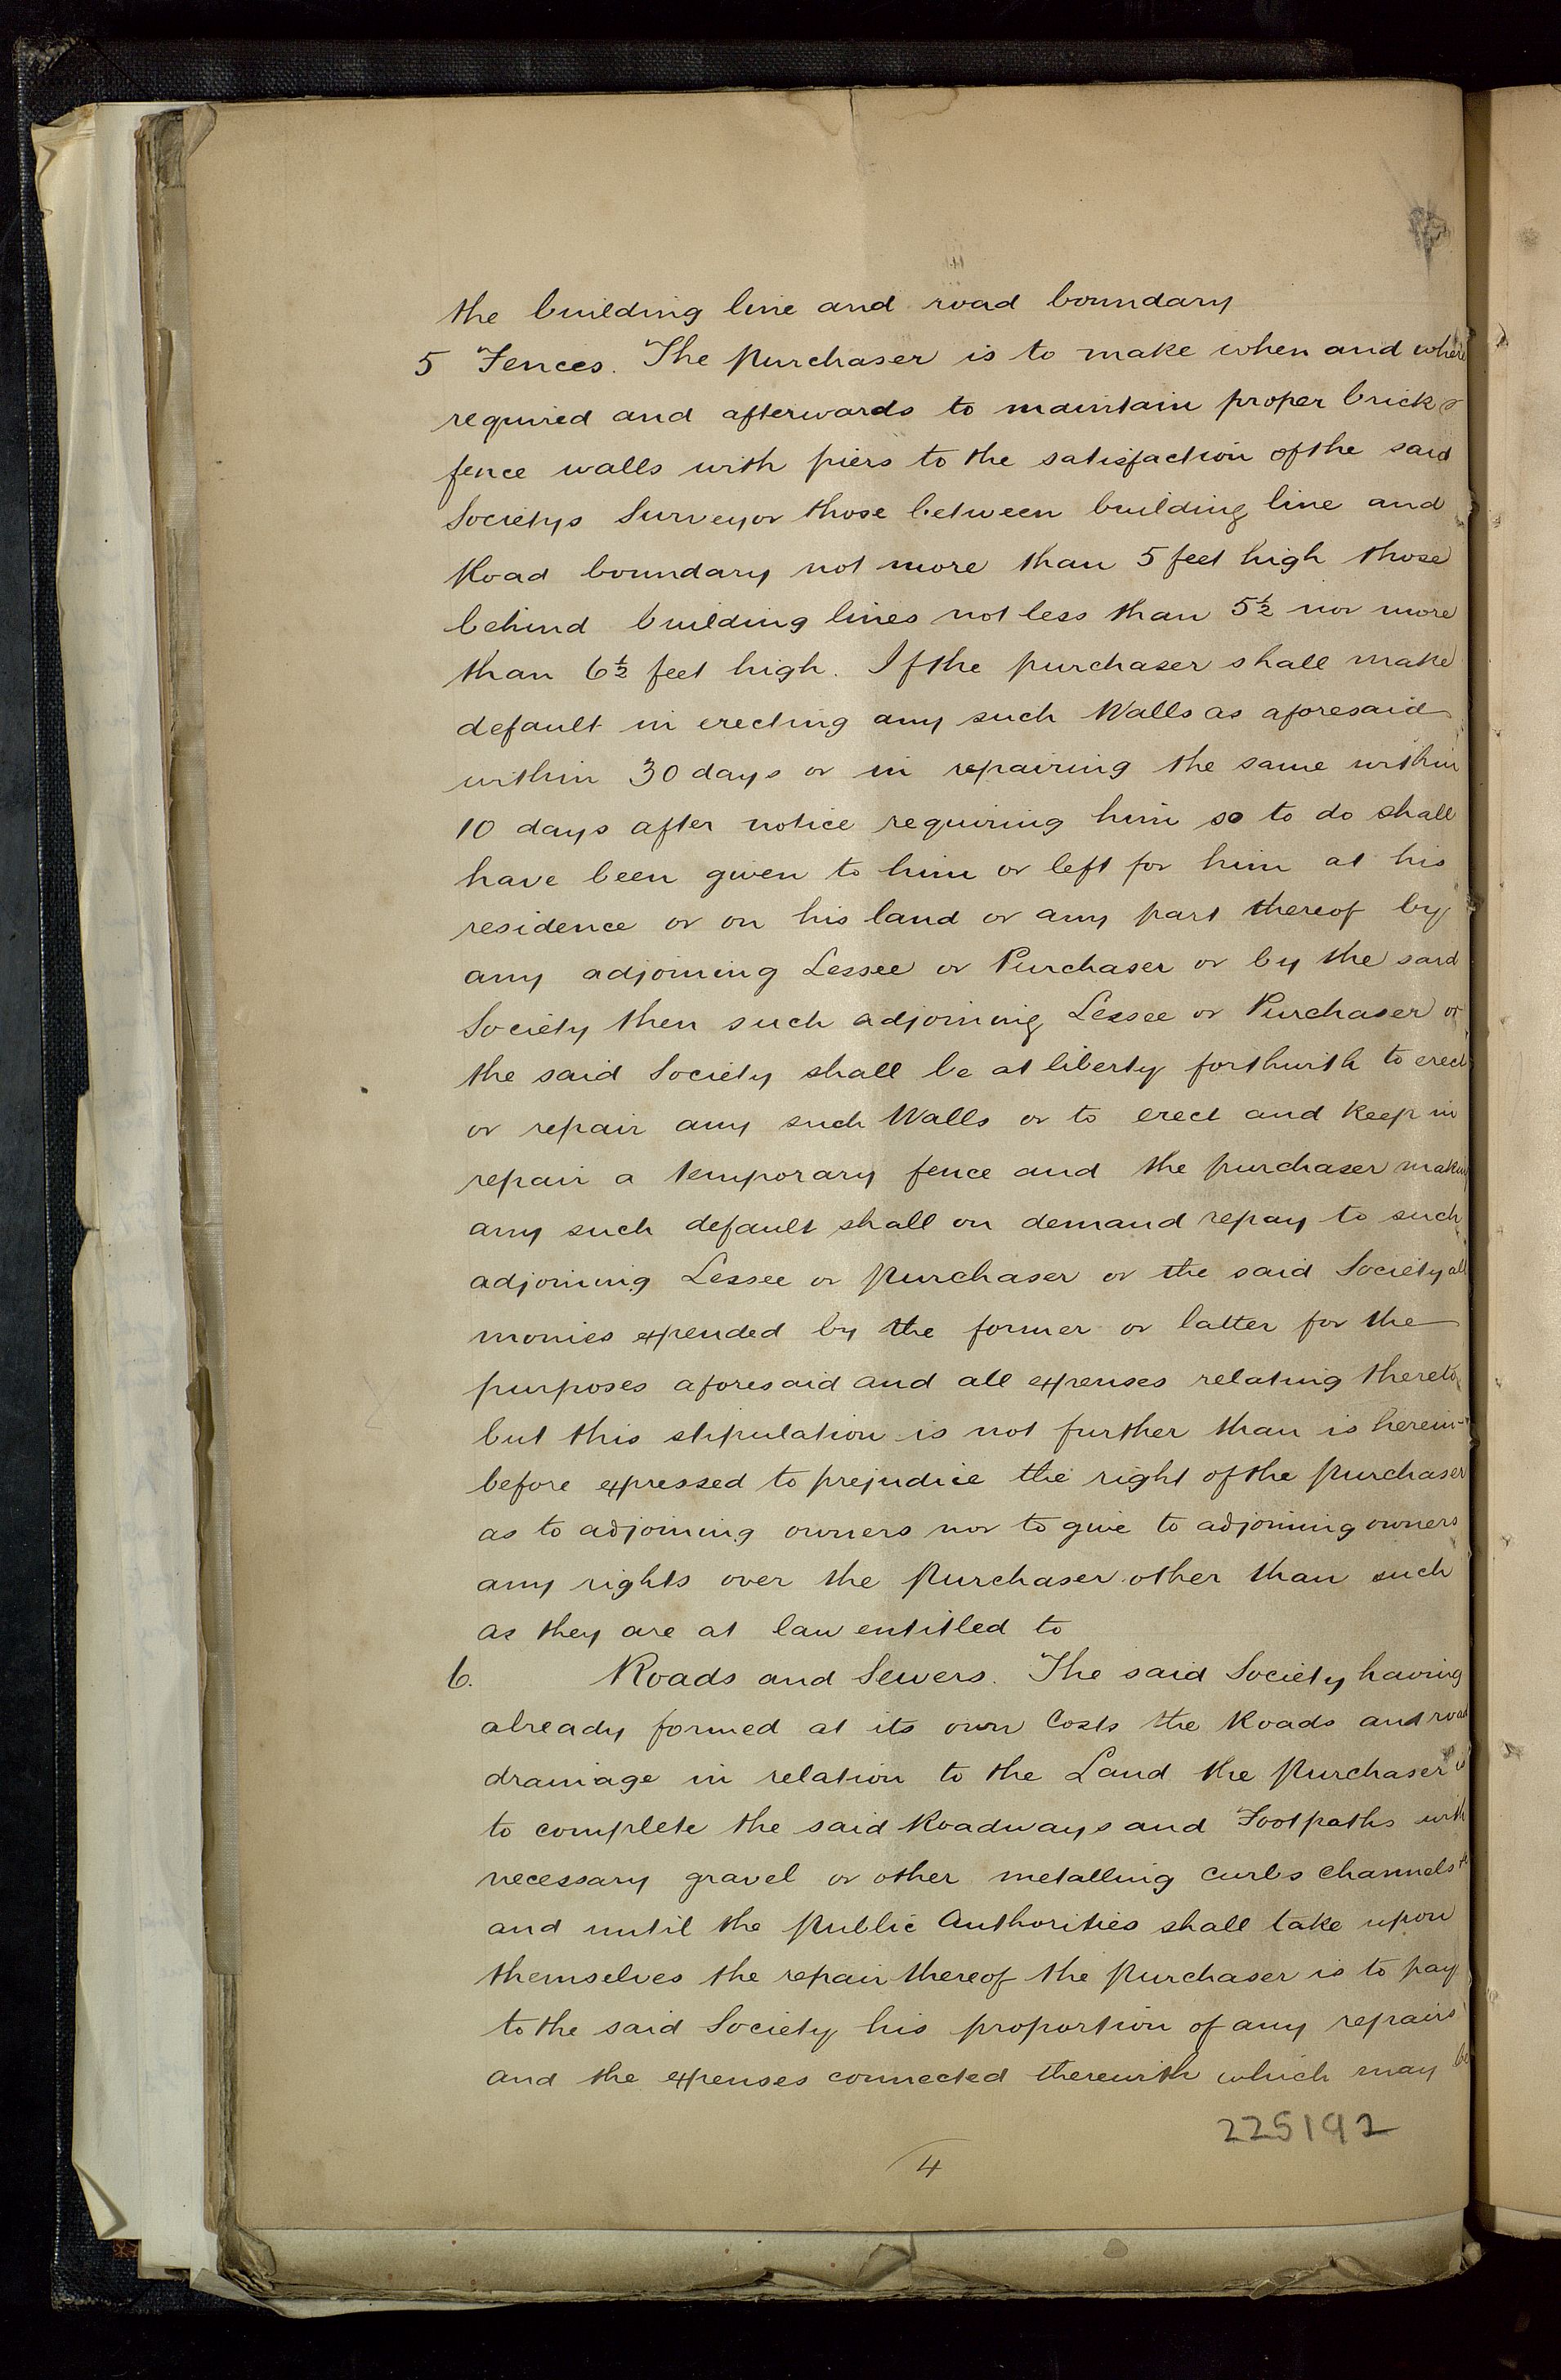 the building line and road boundary
5 Fences. The purchaser is to make when and where
required and afterwards to maintain proper brick
fence walls with piers to the satisfaction of the said
Societys Surveyor those between building line and
Road boundary not more than 5 feet high those
behind building lines not less than 5½ nor more
than 6½ feet high. If the purchaser shall make
default in erecting any such Walls as aforesaid
within 30 days or in repairing the same within
10 days after notice requiring him so to do shall
have been given to him or left for him at his
residence or on his land or any part thereof by
any adjoining Lessee or Purchaser or by the said
Society then such adjoining Lessee or Purchaser or
the said Society shall be at liberty forthwith to erect
or repair any such Walls or to erect and keep in
repair a temporary fence and the purchaser making
any such default shall on demand repay to such
adjoining Lessee or purchaser or the said Society all
monies expended by the former or latter for the
purposes aforesaid and all expenses relating thereto
but this stipulation is not further than is herein-
before expressed to prejudice the right of the purchaser
as to adjoining owners nor to give to adjoining owners
any rights over the purchaser other than such
as they are at law entitled to
6. Roads and Sewers. The said Society having
already formed at its own Costs the Roads and road
drainage in relation to the Land the purchaser is
to complete the said Roadways and Footpaths with
necessary gravel or other metalling curbs channels
and until the public Authorities shall take upon
themselves the repair thereof the purchaser is to pay
to the said Society his proportion of any repairs
and the expenses connected therewith which may be
225192
4